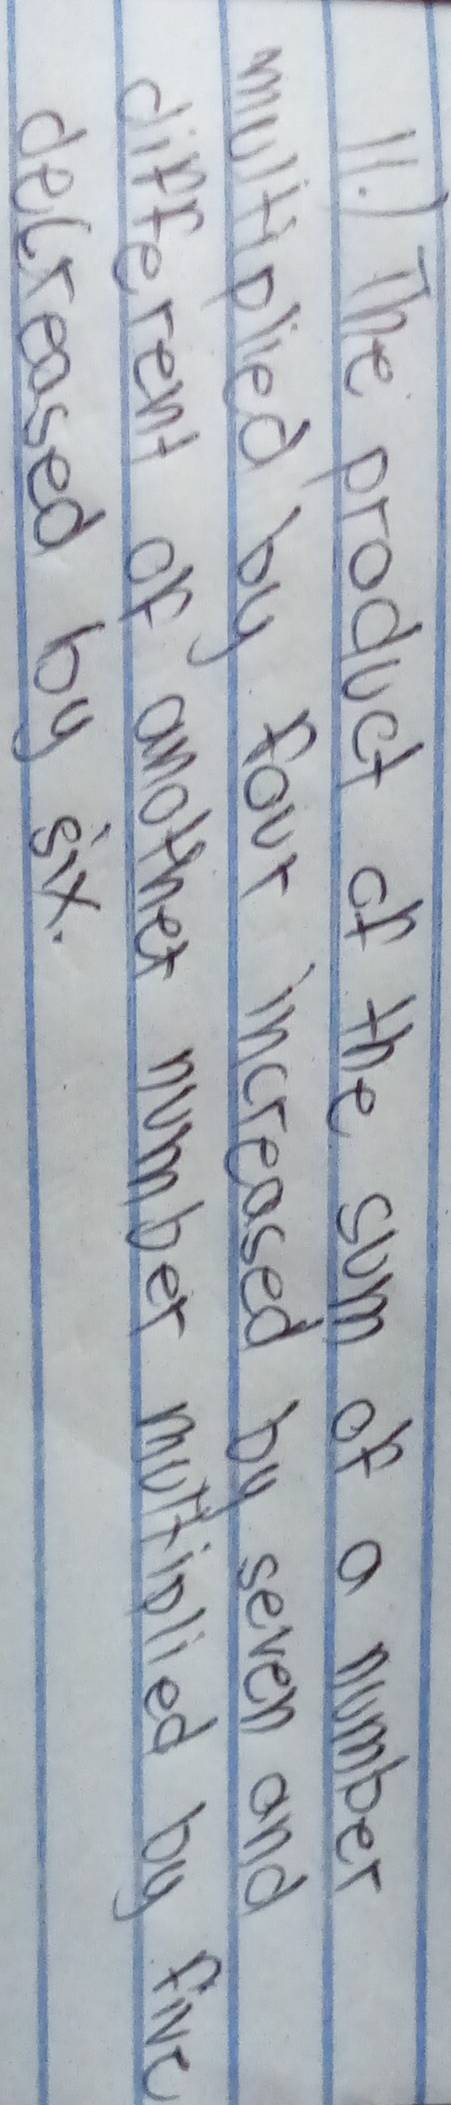 11.) The product of the sum of a number
multiplied by four increased by seven and
different of another number multiplied by five
decreased by six.